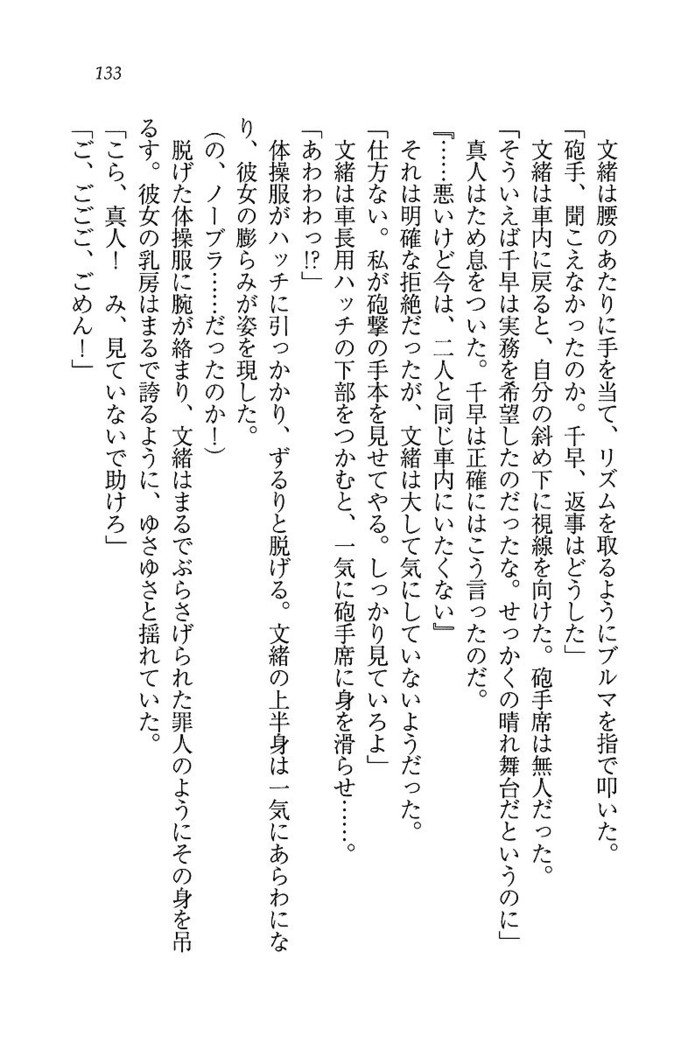 133
文緒は腰のあたりに手を当て、リズムを取るようにブルマを指で叩いた。
「砲手、聞こえなかったのか。千早、返事はどうした」
文緒は車内に戻ると、自分の斜め下に視線を向けた。砲手席は無人だった。
「そういえば千早は実務を希望したのだったな。せっかくの晴れ舞台だというのに」
真人はため息をついた。千早は正確にはこう言ったのだ。
『……悪いけど今は、二人と同じ車内にいたくない』
それは明確な拒絶だったが、文緒は大して気にしていないようだった。
「仕方ない。私が砲撃の手本を見せてやる。しっかり見ていろよ」
文緒は車長用ハッチの下部をつかむと、一気に砲手席に身を滑らせ……。
「あわわわっ!?」
体操服がハッチに引っかかり、ずるりと脱げる。文緒の上半身は一気にあらわにな
り、彼女の膨らみが姿を現した。
(の、ノーブラ……だったのか!)
脱げた体操服に腕が絡まり、文緒はまるでぶらさげられた罪人のようにその身を吊
るす。彼女の乳房はまるで誇るように、ゆさゆさと揺れていた。
「こら、真人! み、見ていないで助けろ」
「ご、ごごご、ごめん!」